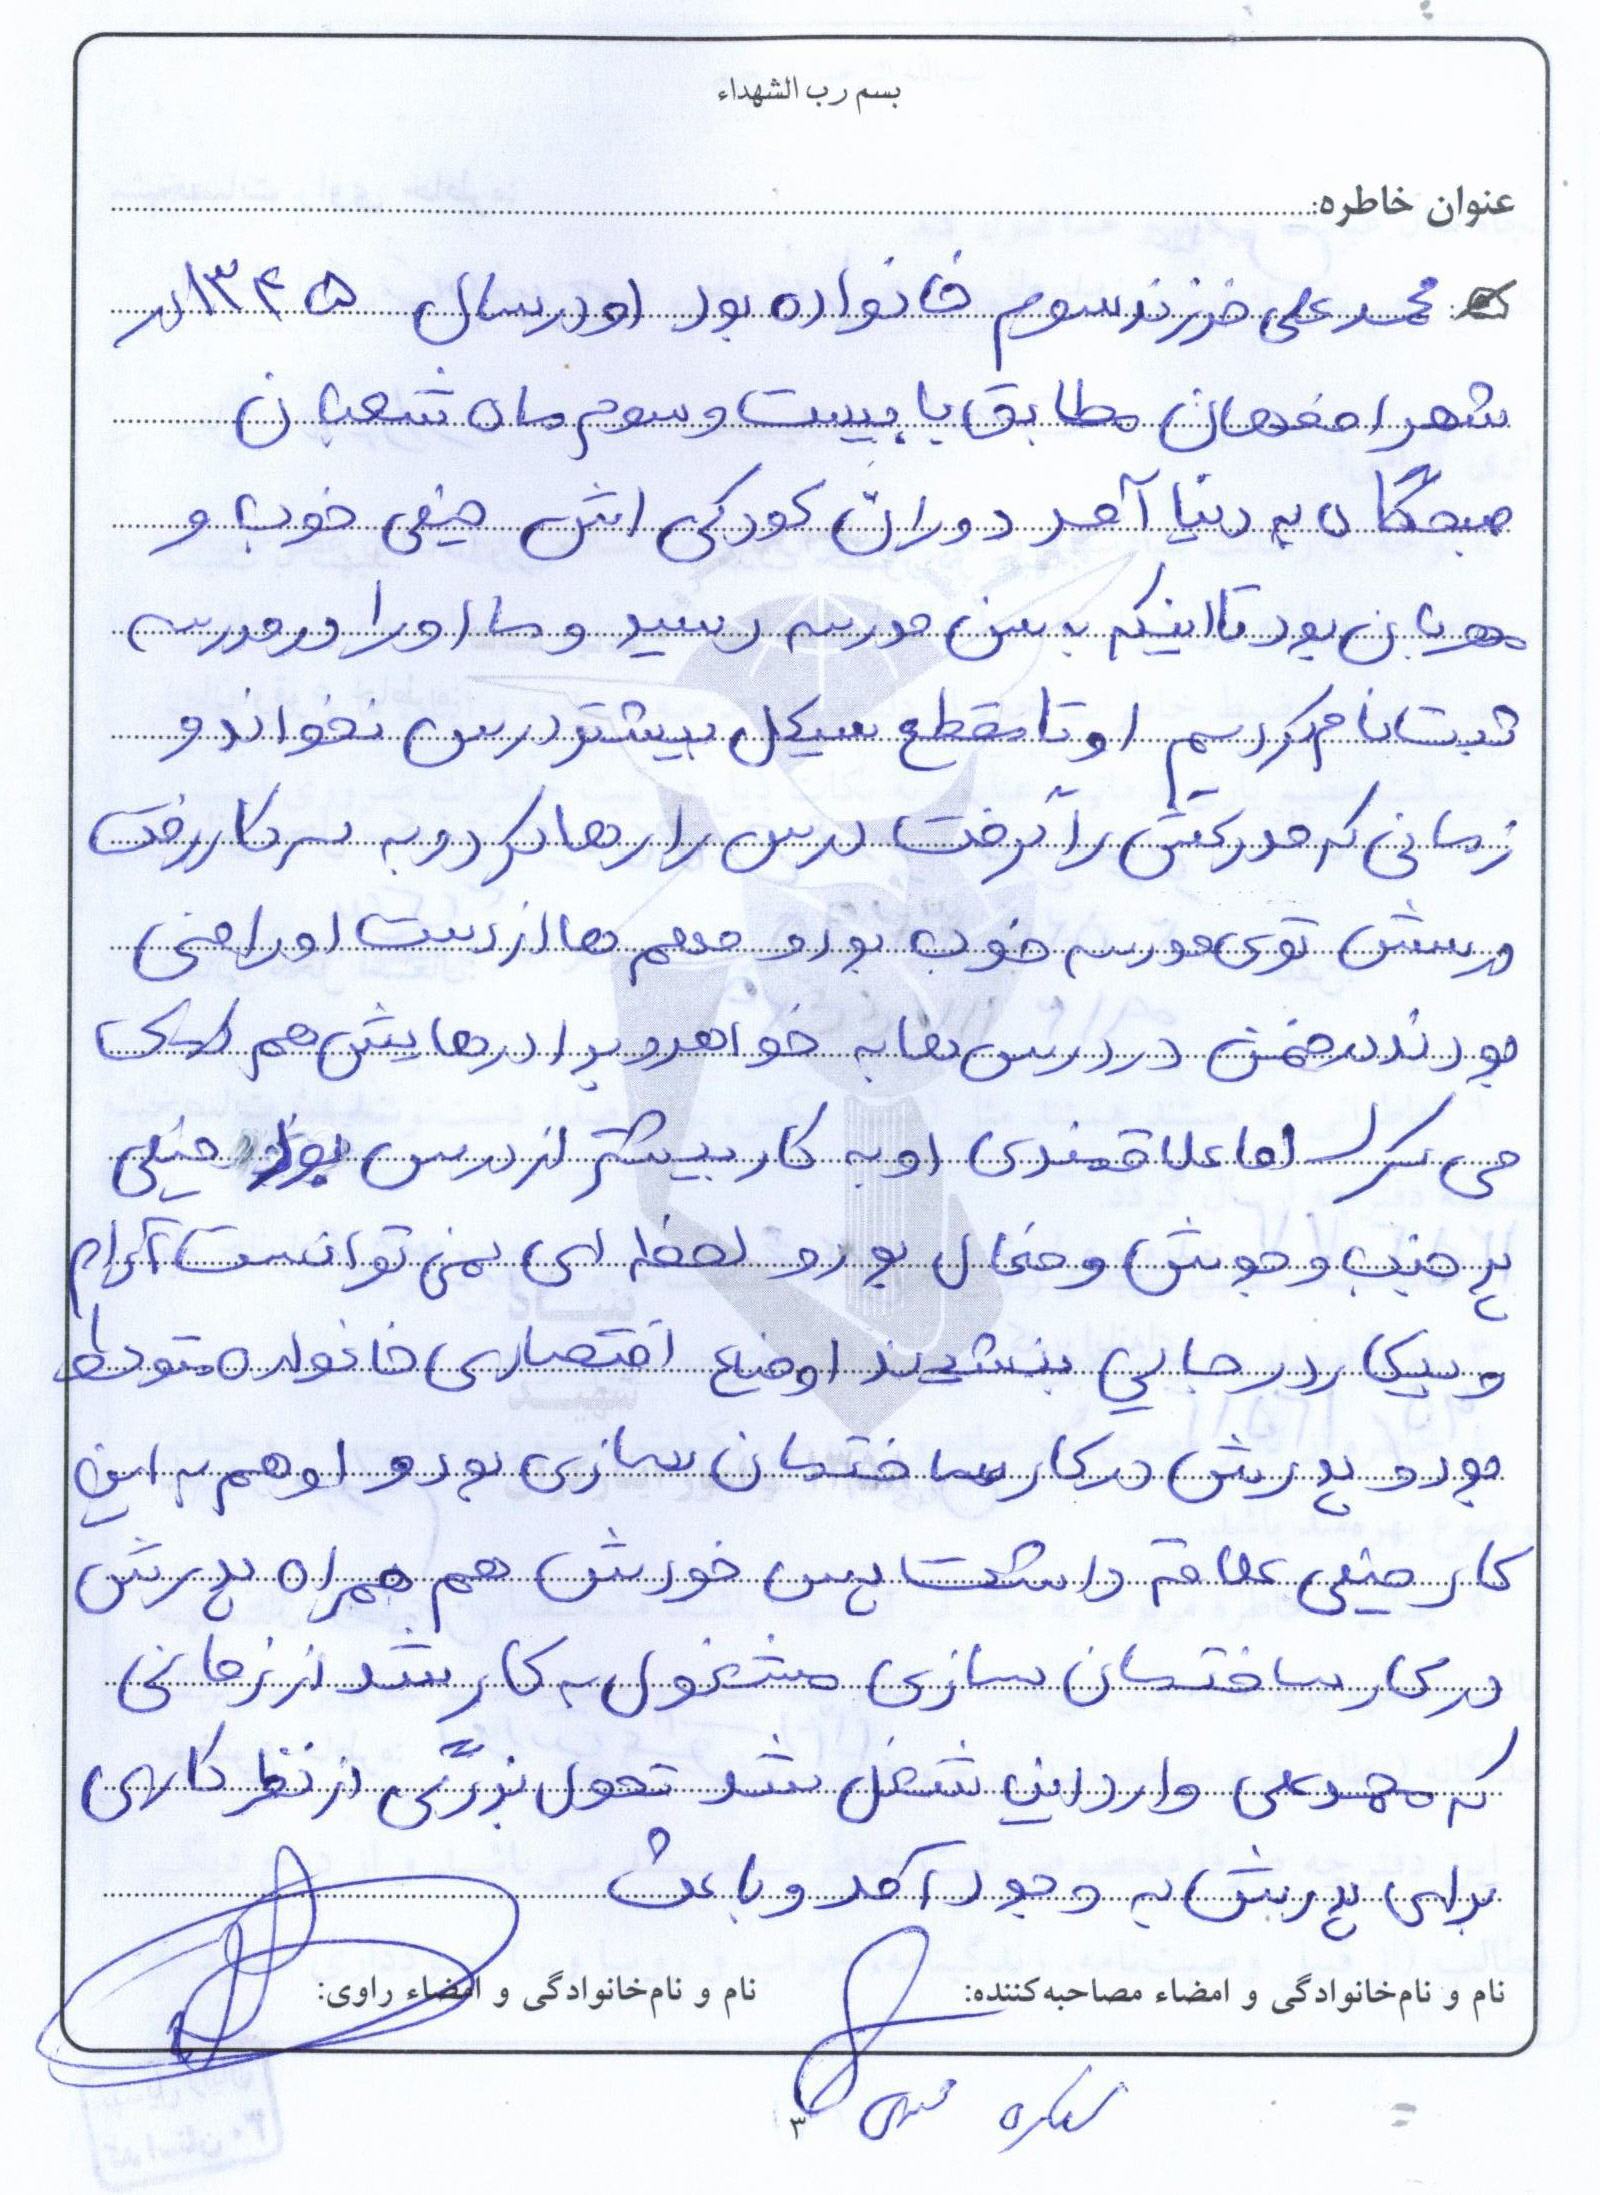 بسم رب الشهداء
عنوان خاطره:
محمدعلی فرزند سوم خانواده بود او در سال ۱۳۴۵ در
شهر اصفهان مطابق با بیست و سوم ماه شعبان
صبحگاه به دنیا آمد دوران کودکی اش خیلی خوب و
مهربان بود تا اینکه به سن مدرسه رسید و ما او را در مدرسه
ثبت نام کردیم او تا مقطع سیکل بیشتر درس نخواند و
زمانی که مدرکش را گرفت درس را رها کرد و به سر کار رفت
درسش توی مدرسه خوب بود و معلم ها از دست او راضی
بودند در ضمن در درس ها به خواهر و برادرهایش هم کمک
می کرد اما علاقمندی او به کار بیشتر از درس بود خیلی
پر جنب و جوش و فعال بود و لحظه ای نمی توانست آرام
و بیکار در جایی بنشیند اوضاع اقتصادی خانواده متوسط
بود و پدرش در کار ساختمان سازی بود و او هم به این
کار خیلی علاقه داشت پس خودش هم همراه پدرش
در کار ساختمان سازی مشغول به کار شد از زمانی
که محمدعلی وارد این شغل شد تحول بزرگی از نظر کاری
برای پدرش به وجود آمد و باعث
نام و نام‌خانوادگی و امضاء مصاحبه‌کننده:
نام و نام‌خانوادگی و امضاء راوی:
۳